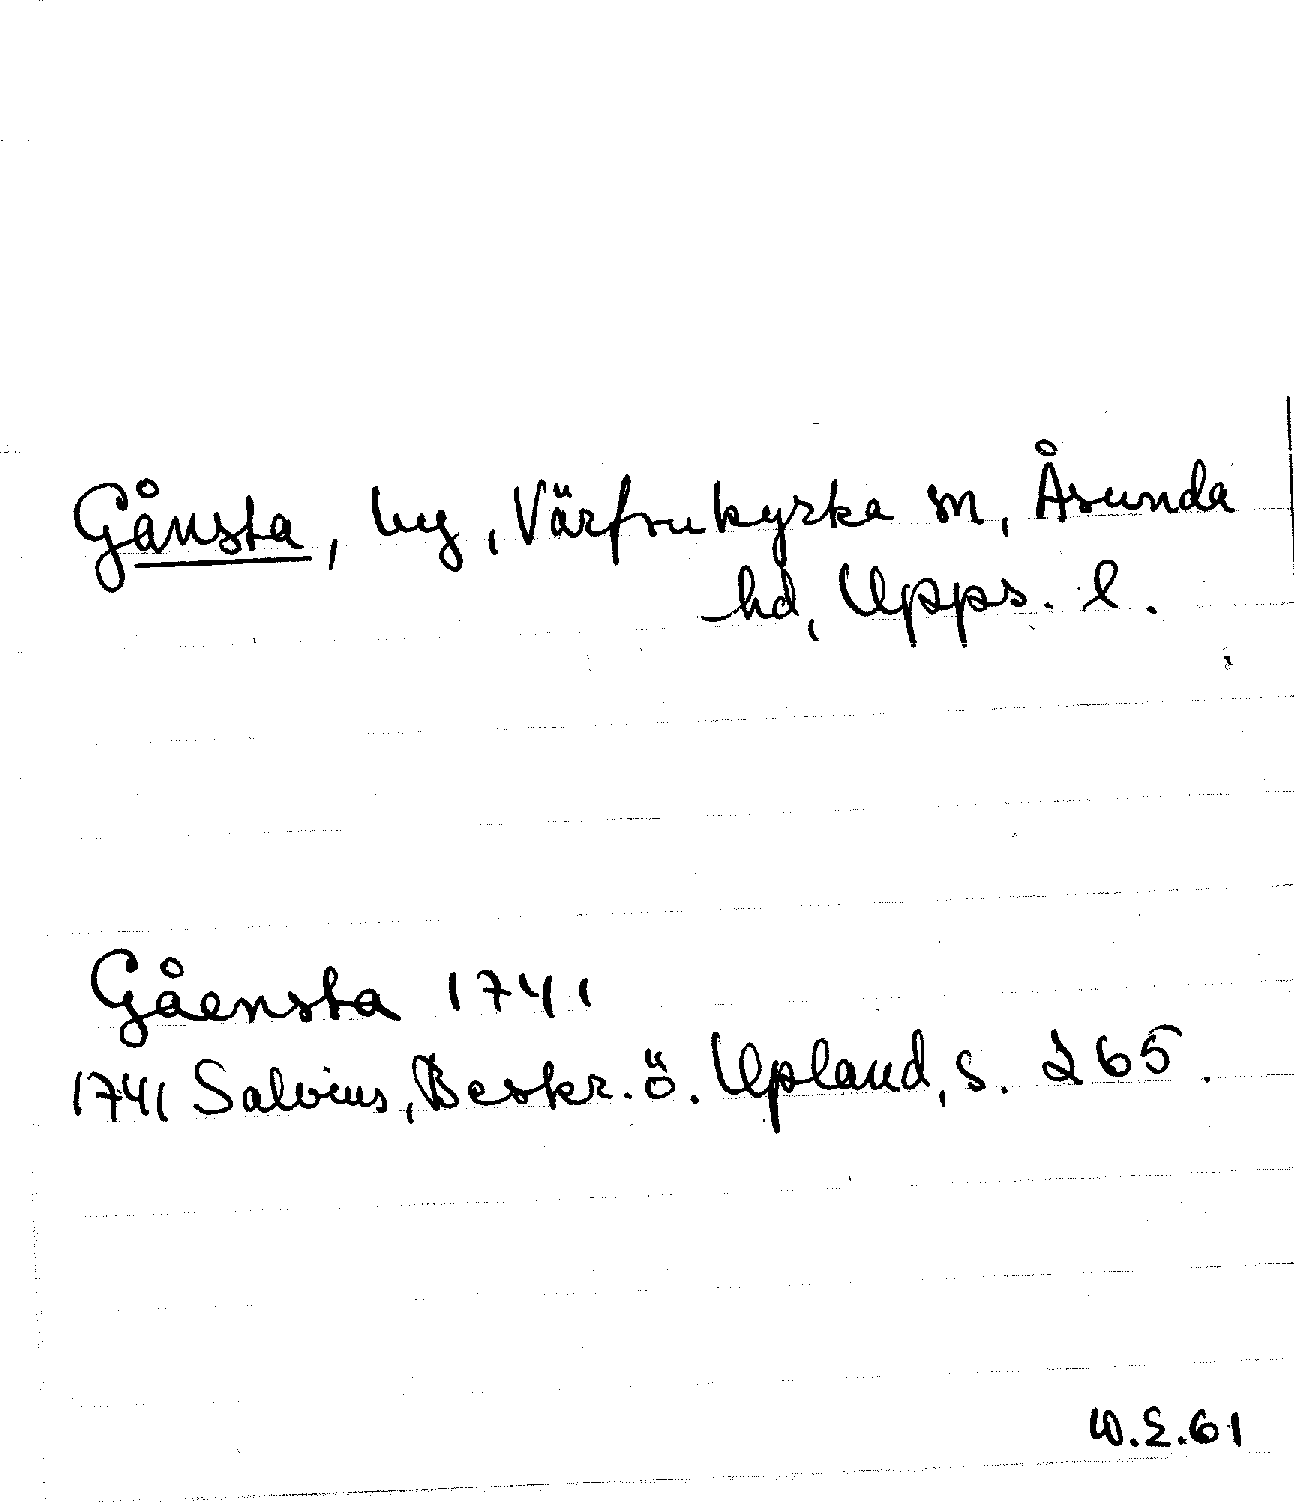 Gånsta, by, Vårfrukyrka sn, Åsunda
hd, Upps. l.
Gåensta 1741
1741 Salvius, Beskr. ö. Upland, s. 265.
W.E.61